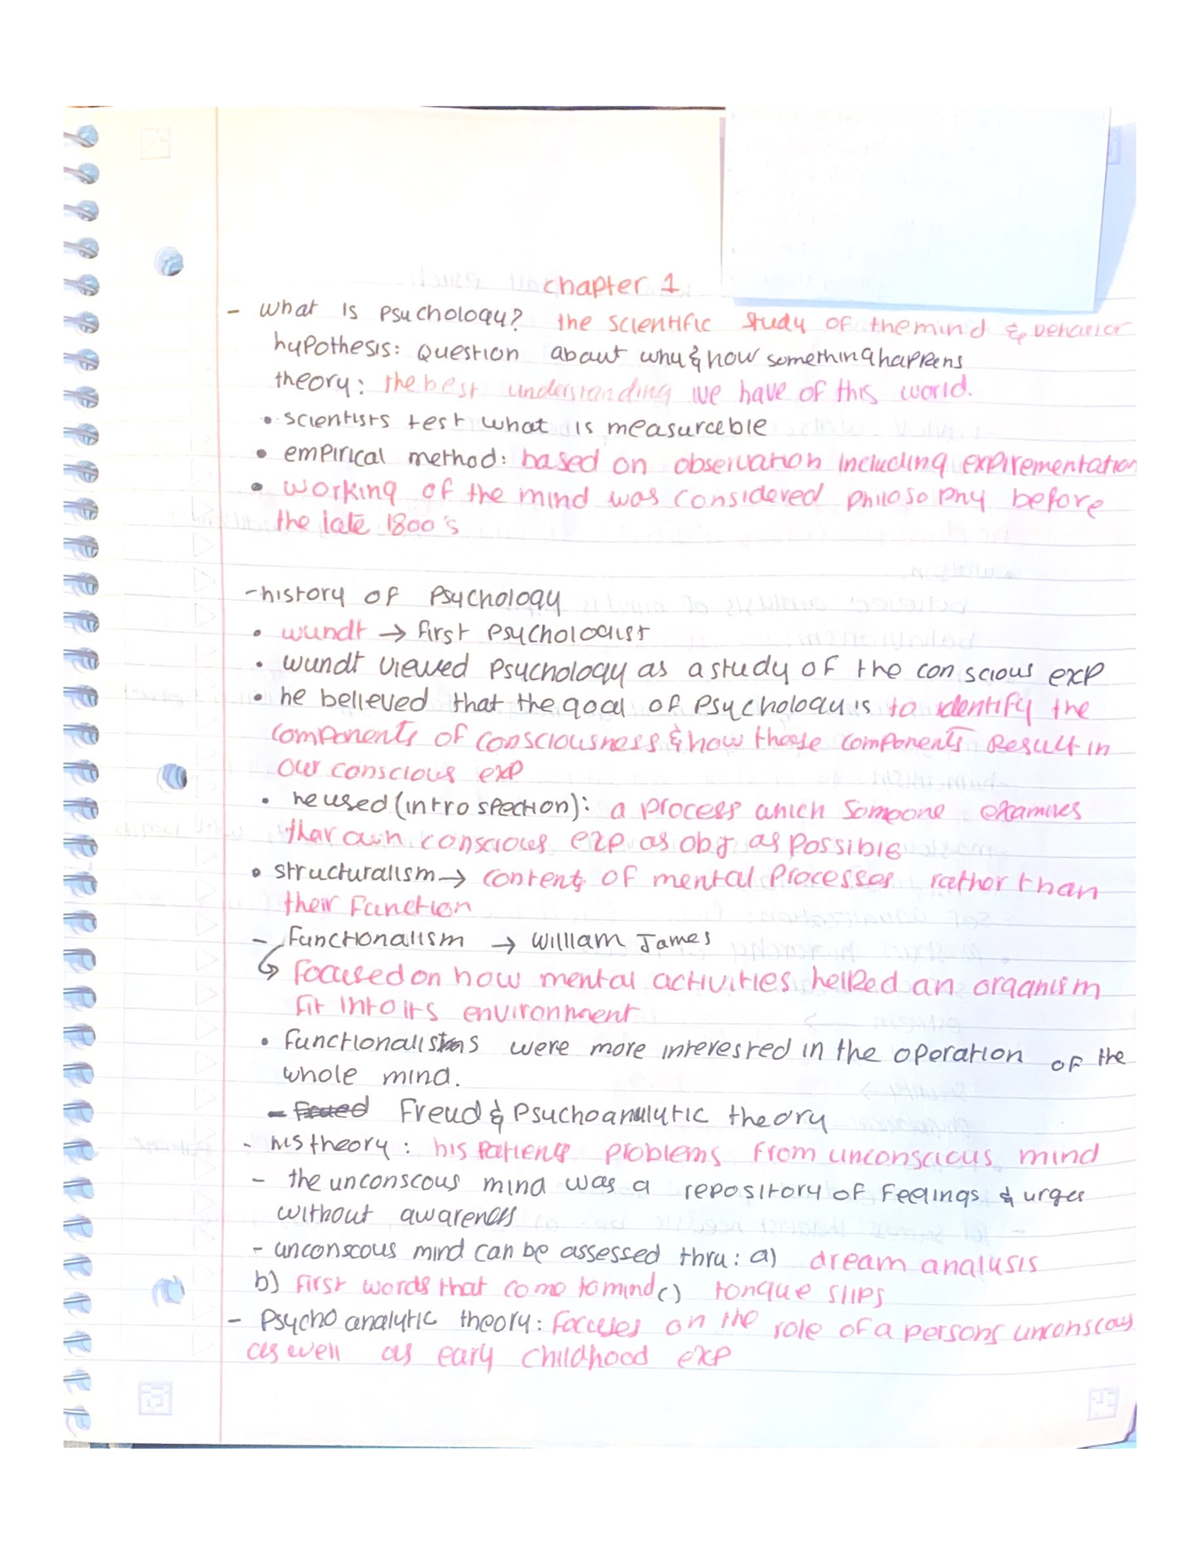 chapter 1
- what is psychology? the scientific study of the mind & behavior
hypothesis: question about why & how something happens
theory: the best understanding we have of this world.
• scientists test what is measureble
• empirical method: based on observation including expirementation
• working of the mind was considered philosophy before
the late 1800's
- history of Psychology
• wundt → first psychologist
• wundt viewed psychology as a study of the conscious exp
• he believed that the goal of psychology is to identify the
components of consciousness & how those components result in
our conscious exp
• he used (introspection): a process which someone examines
thar own conscious exp as obj as possible
• structuralism → content of mental processes rather than
their function
- functionalism → William James
↳ focused on how mental activities helped an organism
fit into its environment
• functionalists were more interested in the operation of the
whole mind.
- Freud & psychoanalytic theory
- his theory: his patients problems from unconscious mind
- the unconscous mind was a repository of feelings & urges
without awareness
- unconscous mind can be assessed thru: a) dream analysis
b) first words that come to mind c) tongue slips
- Psychoanalytic theory: focuses on the role of a persons unconscous
as well as early childhood exp